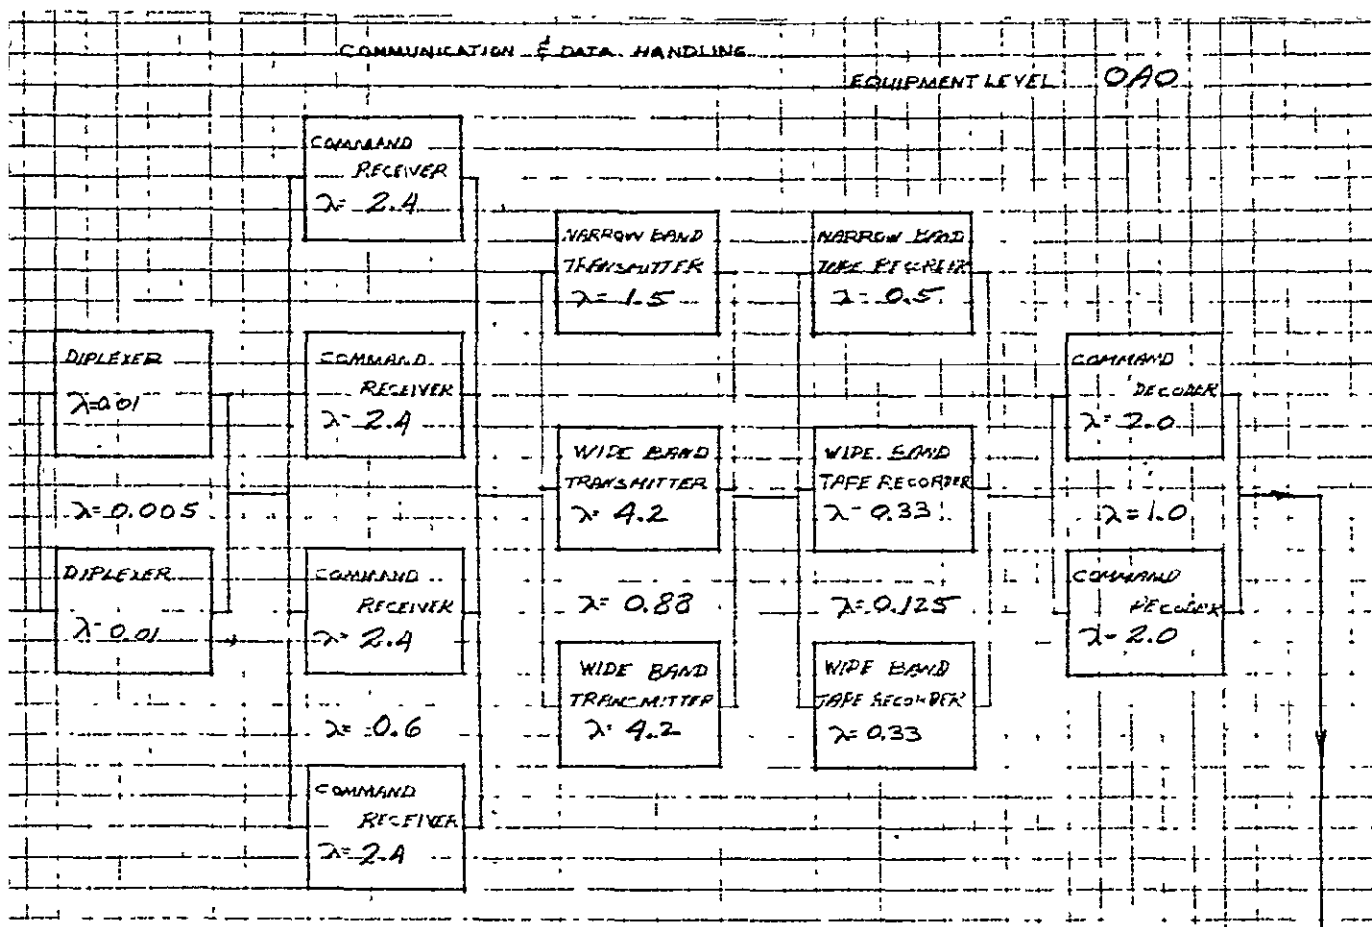 COMMUNICATION & DATA HANDLING
EQUIPMENT LEVEL OAO
DIPLEXER
λ=0.01
λ=0.005
DIPLEXER
λ=0.01
COMMAND
RECEIVER
λ= 2.4
COMMAND
RECEIVER
λ= 2.4
COMMAND
RECEIVER
λ= 2.4
λ= 0.6
COMMAND
RECEIVER
λ= 2.4
NARROW BAND
TRANSMITTER
λ= 1.5
WIDE BAND
TRANSMITTER
λ= 4.2
λ= 0.88
WIDE BAND
TRANSMITTER
λ= 4.2
NARROW BAND
TAPE RECORDER
λ= 0.5
WIDE BAND
TAPE RECORDER
λ= 0.33
λ=0.125
WIDE BAND
TAPE RECORDER
λ= 0.33
COMMAND
DECODER
λ= 2.0
λ=1.0
COMMAND
DECODER
λ= 2.0